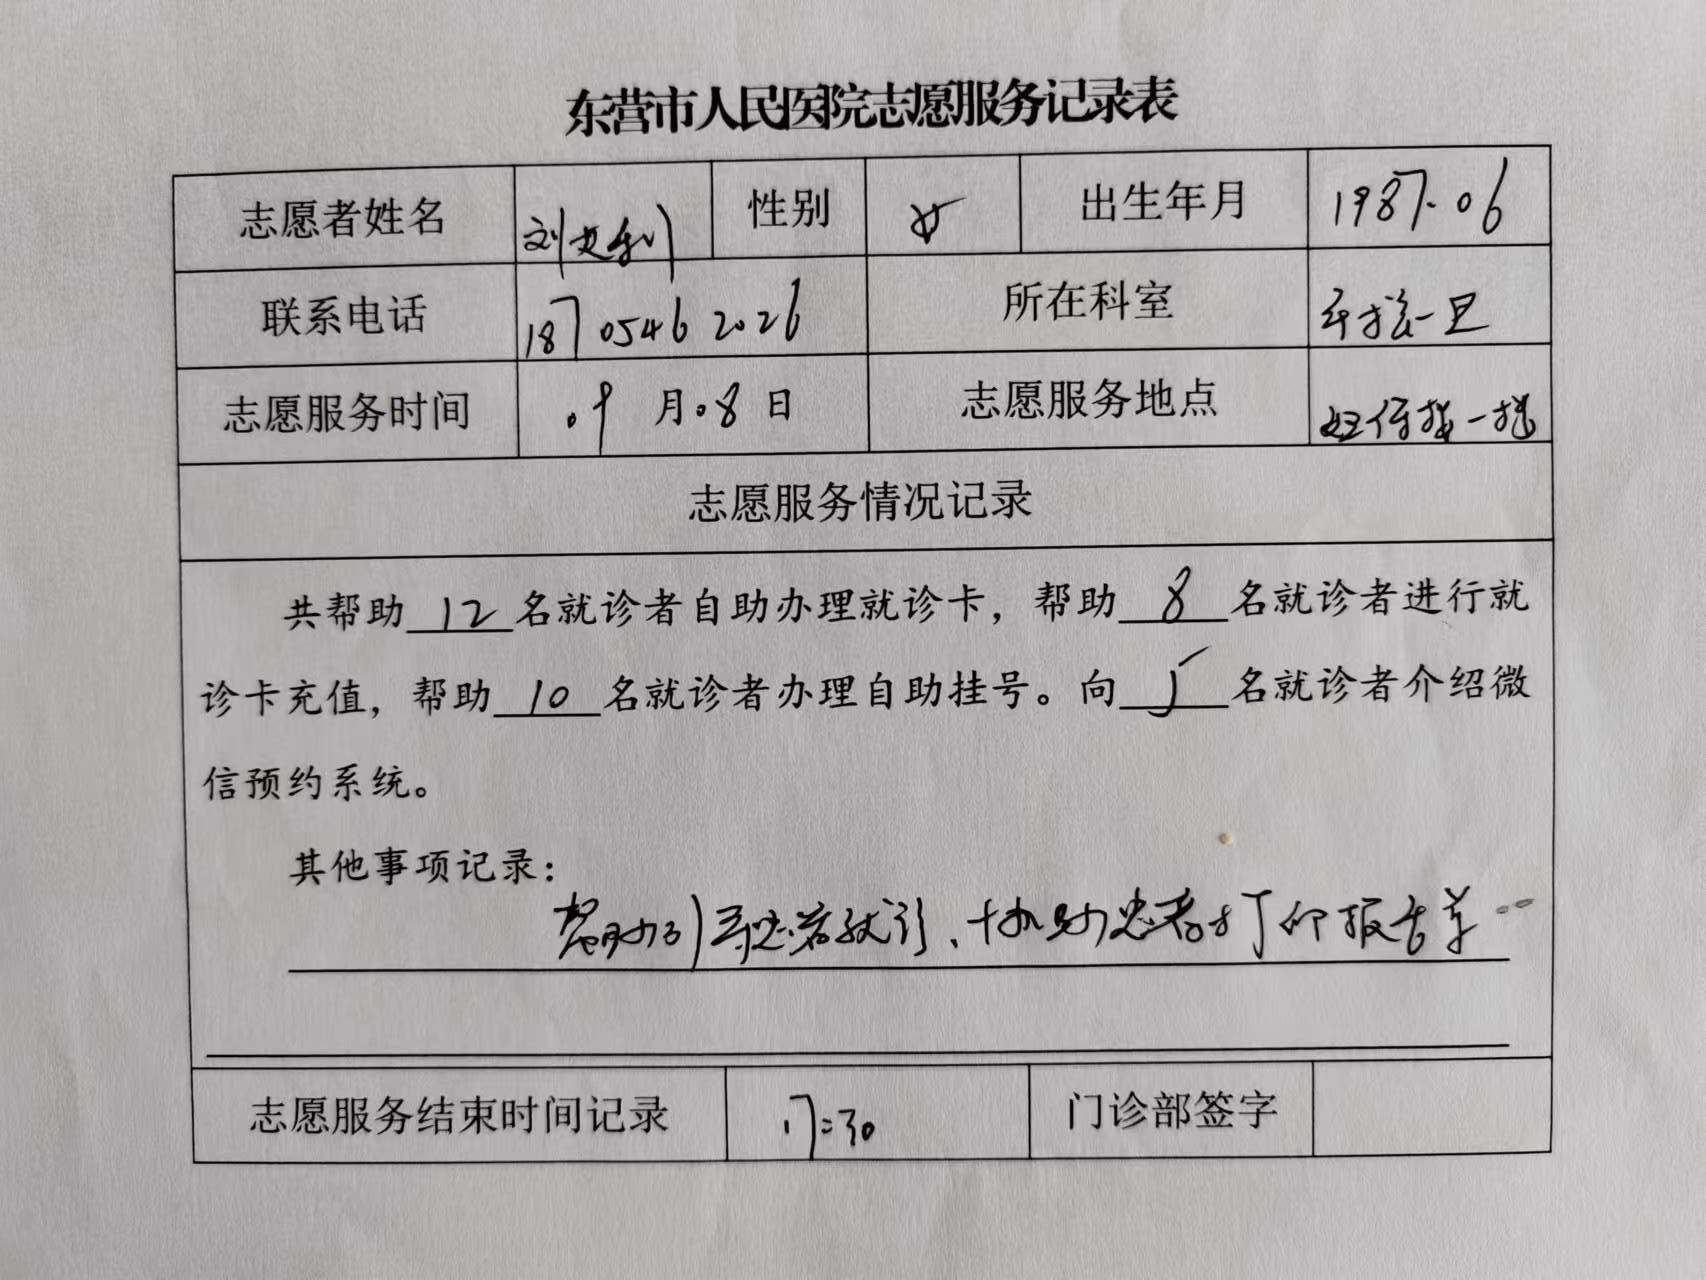 东营市人民医院志愿服务记录表
志愿者姓名 刘 性别 女 出生年月 1987.06
联系电话 187 0546 2026 所在科室
志愿服务时间 09月08日 志愿服务地点 妇保
志愿服务情况记录
共帮助12名就诊者自助办理就诊卡，帮助8名就诊者进行就
诊卡充值，帮助10名就诊者办理自助挂号。向5名就诊者介绍微
信预约系统。
其他事项记录：
帮助引导患者就诊、协助患者打印报告单
志愿服务结束时间记录 17:30 门诊部签字